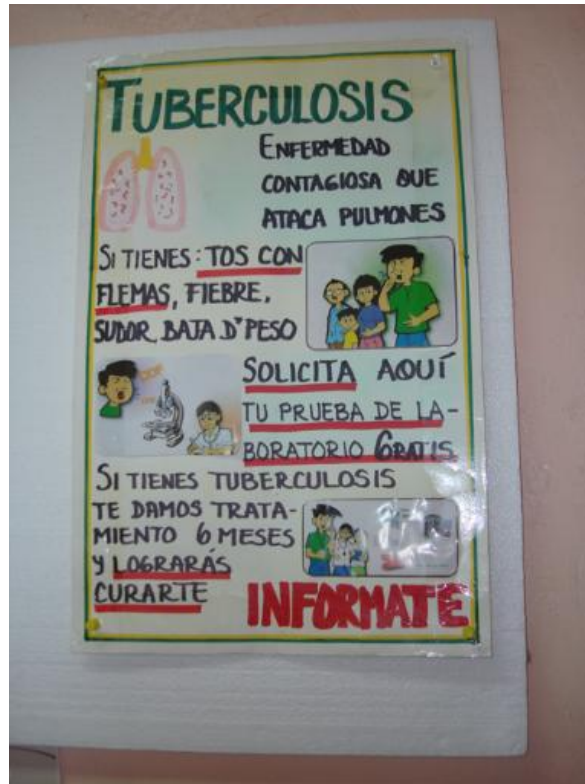 TUBERCULOSIS
ENFERMEDAD
CONTAGIOSA QUE
ATACA PULMONES
SI TIENES: TOS CON
FLEMAS, FIEBRE,
SUDOR, BAJA D' PESO
SOLICITA AQUÍ
TU PRUEBA DE LA-
BORATORIO GRATIS
SI TIENES TUBERCULOSIS
TE DAMOS TRATA-
MIENTO 6 MESES
Y LOGRARÁS
CURARTE
INFORMATE